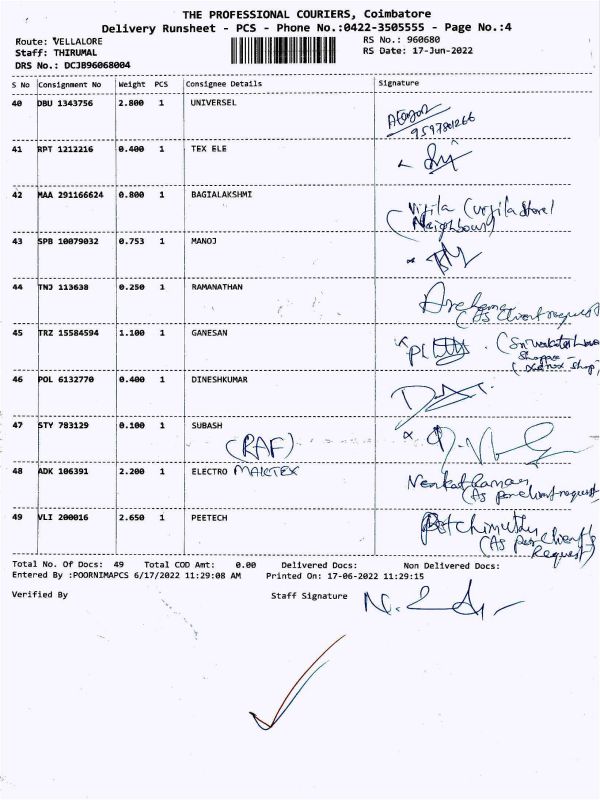 THE PROFESSIONAL COURIERS, Coimbatore
Delivery Runsheet - PCS - Phone No.:0422-3505555 - Page No.:4
Route: VELLALORE
RS No.: 960680
Staff: THIRUMAL
RS Date: 17-Jun-2022
DRS No.: DCJB96068004
S No Consignment No Weight PCS Consignee Details Signature
40 DBU 1343756 2.800 1 UNIVERSEL
9597801266
41 RPT 1212216 0.400 1 TEX ELE
42 MAA 291166624 0.800 1 BAGIALAKSHMI
Vijila (vijila store)
Neighbour)
43 SPB 10079032 0.753 1 MANOJ
44 TNJ 113638 0.250 1 RAMANATHAN
(As client request
45 TRZ 15584594 1.100 1 GANESAN
xerox shop)
46 POL 6132770 0.400 1 DINESHKUMAR
47 STY 783129 0.100 1 SUBASH
(RAF)
48 ADK 106391 2.200 1 ELECTRO MAKTEX
Venkatraman
(As per client request
49 VLI 200016 2.650 1 PEETECH
Petchimuthu
(As per client's
Request)
Total No. Of Docs: 49 Total COD Amt: 0.00 Delivered Docs: Non Delivered Docs:
Entered By :POORNIMAPCS 6/17/2022 11:29:08 AM Printed On: 17-06-2022 11:29:15
Verified By Staff Signature